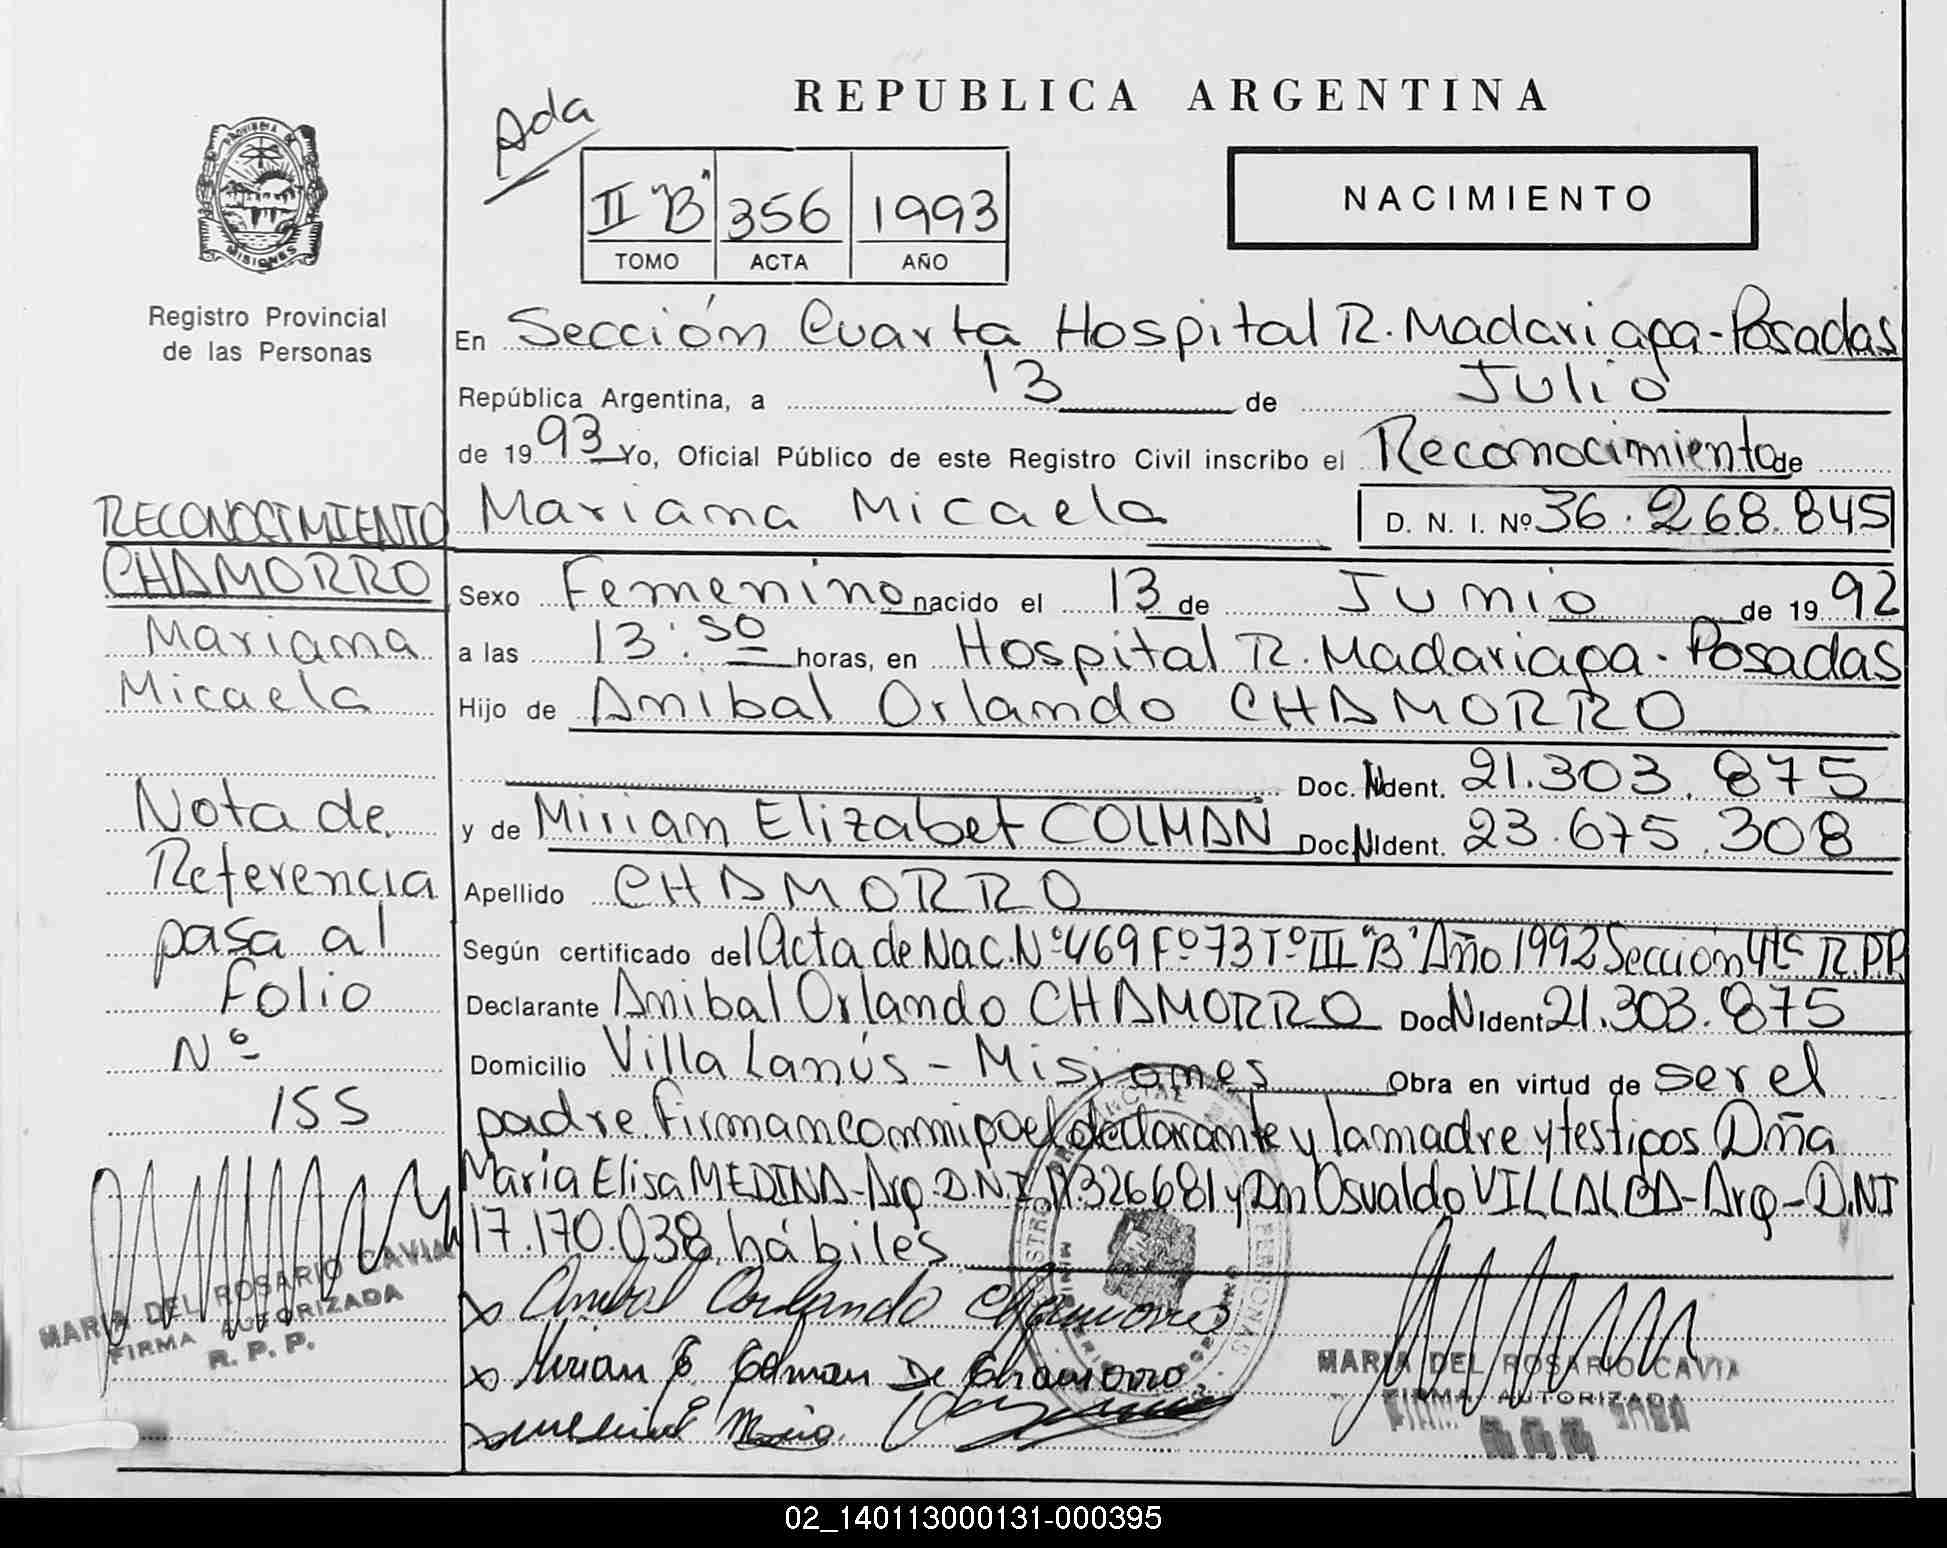 REPUBLICA ARGENTINA
Ada
II "B" 356 1993
TOMO ACTA AÑO
NACIMIENTO
PROVINCIA DE
MISIONES
Registro Provincial
de las Personas
En Sección Cuarta Hospital R. Madariaga-Posadas
República Argentina, a 13 de Julio
de 1993 Yo, Oficial Público de este Registro Civil inscribo el Reconocimiento de
Mariana Micaela D. N. I. Nº 36.268.845
RECONOCIMIENTO
CHAMORRO
Mariana
Micaela
Nota de
Referencia
pasa al
Folio
Nº
155
MARIA DEL ROSARIO CAVIA
FIRMA AUTORIZADA
R. P. P.
Sexo Femenino nacido el 13 de Junio de 1992
a las 13:50 horas, en Hospital R. Madariaga. Posadas
Hijo de Anibal Orlando CHAMORRO
Doc. N Ident. 21.303.875
y de Mirian Elizabet COLMAN Doc. N Ident. 23.675.308
Apellido CHAMORRO
Según certificado del Acta de Nac. Nº 469 Fº 73 Tº III "B" Año 1992 Sección 4ta R.P.P.
Declarante Anibal Orlando CHAMORRO Doc N Ident 21.303.875
Domicilio Villa Lanús - Misiones Obra en virtud de ser el
padre. Firman conmigo el declarante y la madre y testigos Dña
María Elisa MEDINA-Arg. D.N.I. 11.326681 y Dn Osvaldo VILLALBA-Arg-D.NI
17.170.038, hábiles
x Anibal Orlando Chamorro
x Mirian E. Colman De Chamorro
MARIA DEL ROSARIO CAVIA
FIRMA AUTORIZADA
02_140113000131-000395